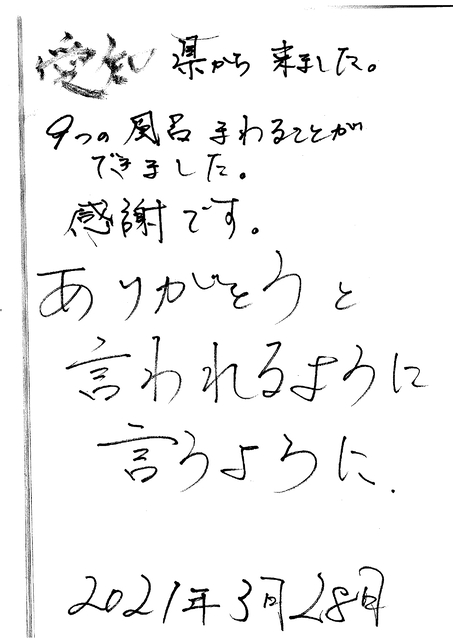 愛知県から来ました。
9つの風呂まわることが
できました。
感謝です。
ありがとうと
言われるように
言うように.
2021年3月28日